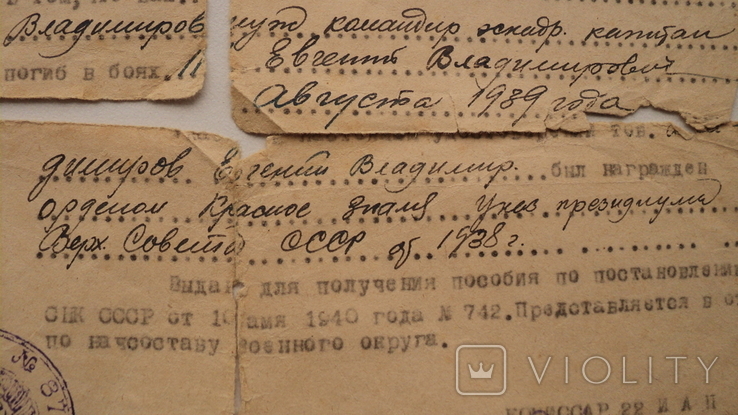 в том, что Ваш
Владимиров муж командир эскадр. капитан
Евгений Владимирович
погиб в боях 11
Августа 1939 года
тов.
димиров Евгений Владимир. был награжден
орденом Красное знамя Указ президиума
Верх. Совета СССР от 1938 г.
Выдано для получения пособия по постановлени
СНК СССР от 10 мая 1940 года № 742. Представляется в от
по начсоставу военного округа.
КОМИССАР 22 ИАП
VIOLITY